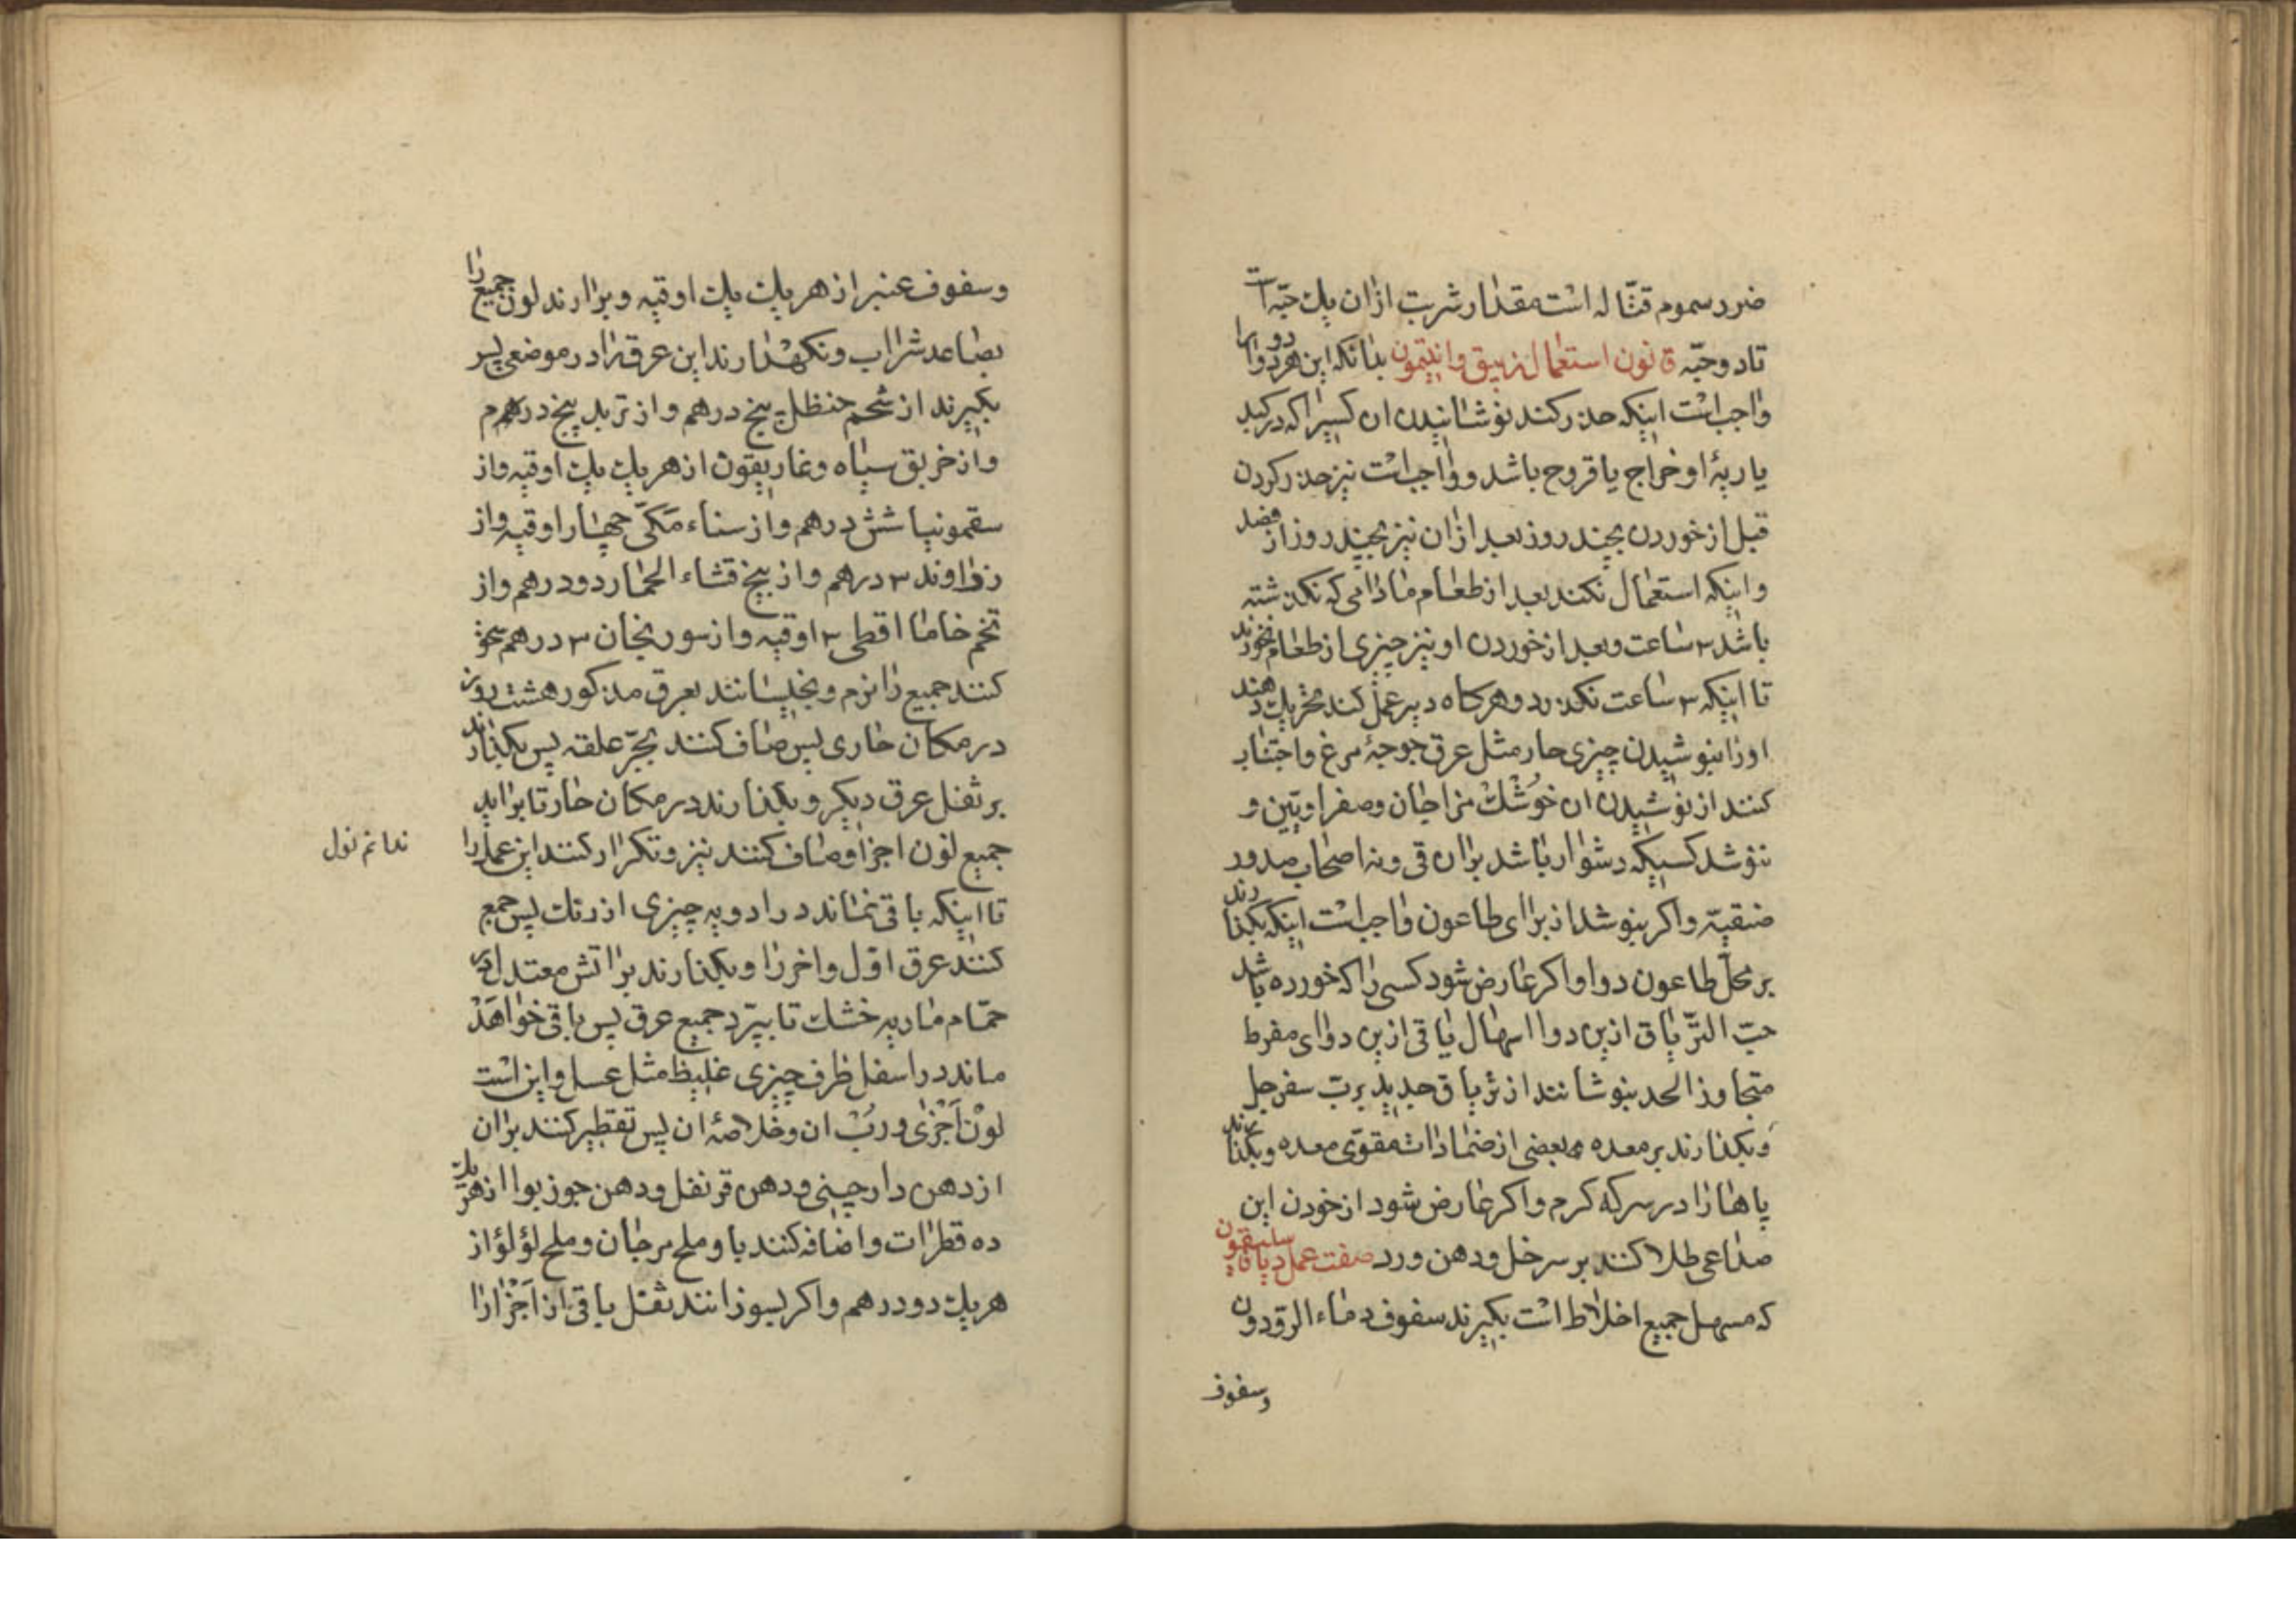 ضرر سموم قتّاله است مقدار شربت ازان یك حبّه است
تا دو حبّه قانون استعمال زیبق وانتیمون بدانکه این هر دو دوا را
واجب است اینکه حذر کنند نوشانیدن ان کسیرا که در کبد
یا ریهٔ او خراج یا قروح باشد و واجب است نیز حذر کردن
قبل از خوردن بچند روز بعد ازان نیز بچند روز از فصد
و اینکه استعمال نکنند بعد از طعام مادامی که نکذشته
باشد ۳ ساعت و بعد از خوردن او نیز چیزی از طعام نخورند
تا اینکه ۳ ساعت نکذرد و هرکاه دیر عمل کند تحریك دهند
اورا بنوشیدن چیزی حار مثل عرق جوجهٔ مرغ و اجتناب
کنند از نوشیدن ان خوشك مزاجان وصفراویّین و
ننوشد کسیکه دشوار باشد بران قی و نه اصحاب صدور
ضیقیّه و اکر بنوشد از برای طاعون واجب است اینکه بکذارند
بر محلّ طاعون دوا و اکر عارض شود کسی را که خورده باشد
حبّ التریاق ازین دوا اسهال یا قی ازین دوای مفرط
متجاوز الحد بنوشانند از تریاق جدید بربّ سفرجل
وبکذارند بر معده بعضی از ضمادات مقوّی معده وبکذارند
پاهارا در سرکه کرم و اکر عارض شود از خودن این
صداعی طلا کنند بر سر خل ودهن ورد صفت عمل دیاقاسلیقون
که مسهل جمیع اخلاط است بکیرند سفوف دماء الرودون
وسفوف
وسفوف عنبر از هر یك یك اوقیه و بر ارند لون جمیع را
بصاعد شراب ونکهدارند این عرق را در موضعی پس
بکیرند از شحم حنظل پنج درهم و از تربد پنج درهم
و از خربق سیاه وغاریقون از هر یك یك اوقیه واز
سقمونیا شش درهم واز سناء مکّی چهار اوقیه واز
زراوند ۳ درهم واز بیخ قثاء الحمار دو درهم واز
تخم خاما اقطی ۳ اوقیه واز سورنجان ۳ درهم سحق
کنند جمیع را نرم وبخیسانند بعرق مذکور هشت روز
در مکان حاری پس صاف کنند بجرّ علقه پس بکذارند
بر ثفل عرق دیکر وبکذارند در مکان حار تا براید
جمیع لون اجزا وصاف کنند نیز وتکرار کنند این عمل را
تا اینکه باقی نماند در ادویه چیزی از رنك پس جمع
کنند عرق اوّل واخر را وبکذارند بر اتش معتدل در
حمّام ماریه خشك تا بپرّد جمیع عرق پس باقی خواهد
ماند در اسفل ظرف چیزی غلیظ مثل عسل واین است
لون اجزی وربّ ان وخلاصهٔ ان پس تقطیر کنند بران
از دهن دارچینی ودهن قرنفل ودهن جوز بوا از هر یك
ده قطرات واضافه کنند باو ملح مرجان وملح لؤلؤ از
هر یك دو درهم واکر بسوزانند ثفل باقی از اجزا را